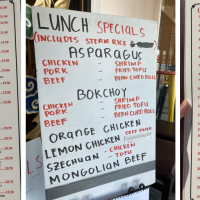 LUNCH SPECIALS
(INCLUDES STEAM RICE &
ASPARAGUS
CHICKEN - SHRIMP
PORK - FRIED TOFU
BEEF - BEAN CURD ROLL
BOKCHOY
CHICKEN - SHRIMP
PORK - FRIED TOFU
BEEF - BEAN CURD ROLL
ORANGE CHICKEN
LEMON CHICKEN DEEP FRIED
SZECHUAN - CHICKEN
- TOFU
MONGOLIAN BEEF